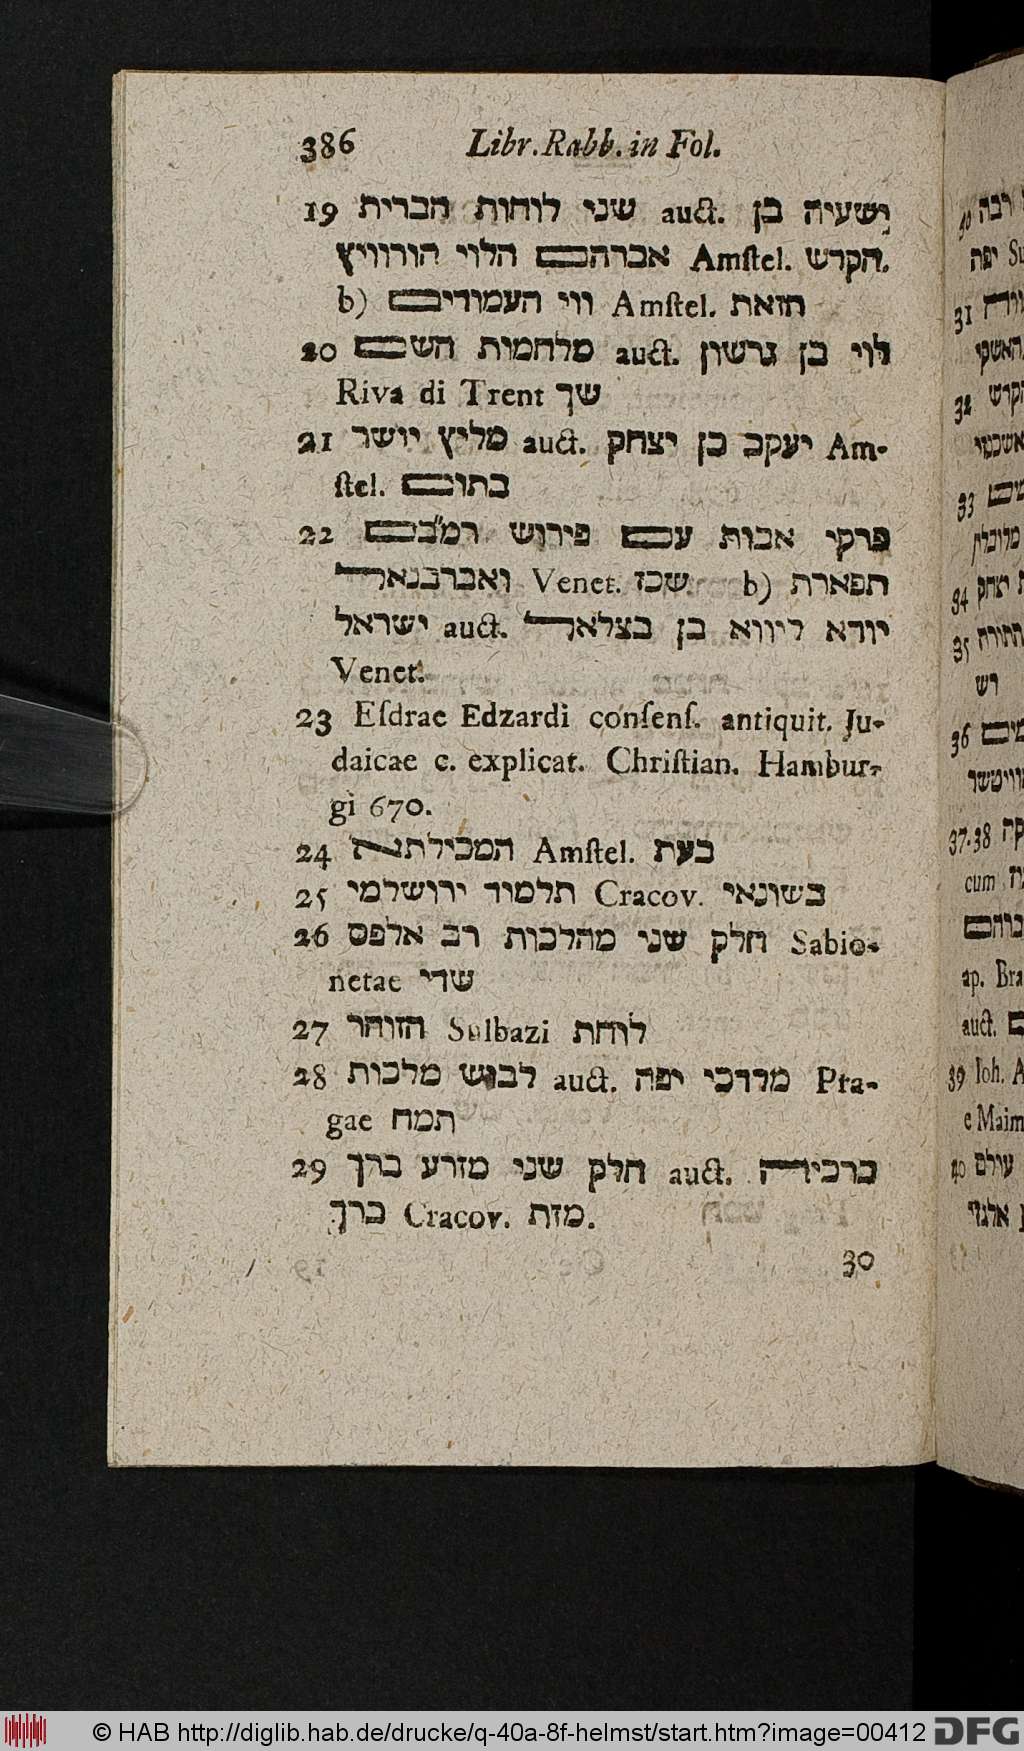 386 Libr. Rabb. in Fol.
19 שני לוחות הברית auct. ישעיה בן
אברהם הלוי הורוויץ Amſtel. הקדש.
b) ווי העמודים Amſtel. הזאת
20 מלחמות השם auct. לוי בן גרשון
Riva di Trent שך
21 מליץ יושר auct. יעקב בן יצחק Am-
ſtel. בתום
22 פרקי אבות עם פירוש רמ"בם
ואברבנאל Venet. שכז b) תפארת
ישראל auct. יודא ליווא בן בצלאל
Venet.
23 Eſdrae Edzardi conſenſ. antiquit. Ju-
daicae c. explicat. Chriſtian. Hambur-
gi 670.
24 המכילתא Amſtel. בעת
25 תלמוד ירושלמי Cracov. בשונאי
26 חלק שני מהלכות רב אלפס Sabio-
netae שדי
27 הזוהר Sulbazi לוחת
28 לבוש מלכות auct. מרדכי יפה Pra-
gae תמח
29 חלק שני מזרע ברך auct. ברכיה
ברך Cracov. מזת.
30
© HAB http://diglib.hab.de/drucke/q-40a-8f-helmst/start.htm?image=00412 DFG